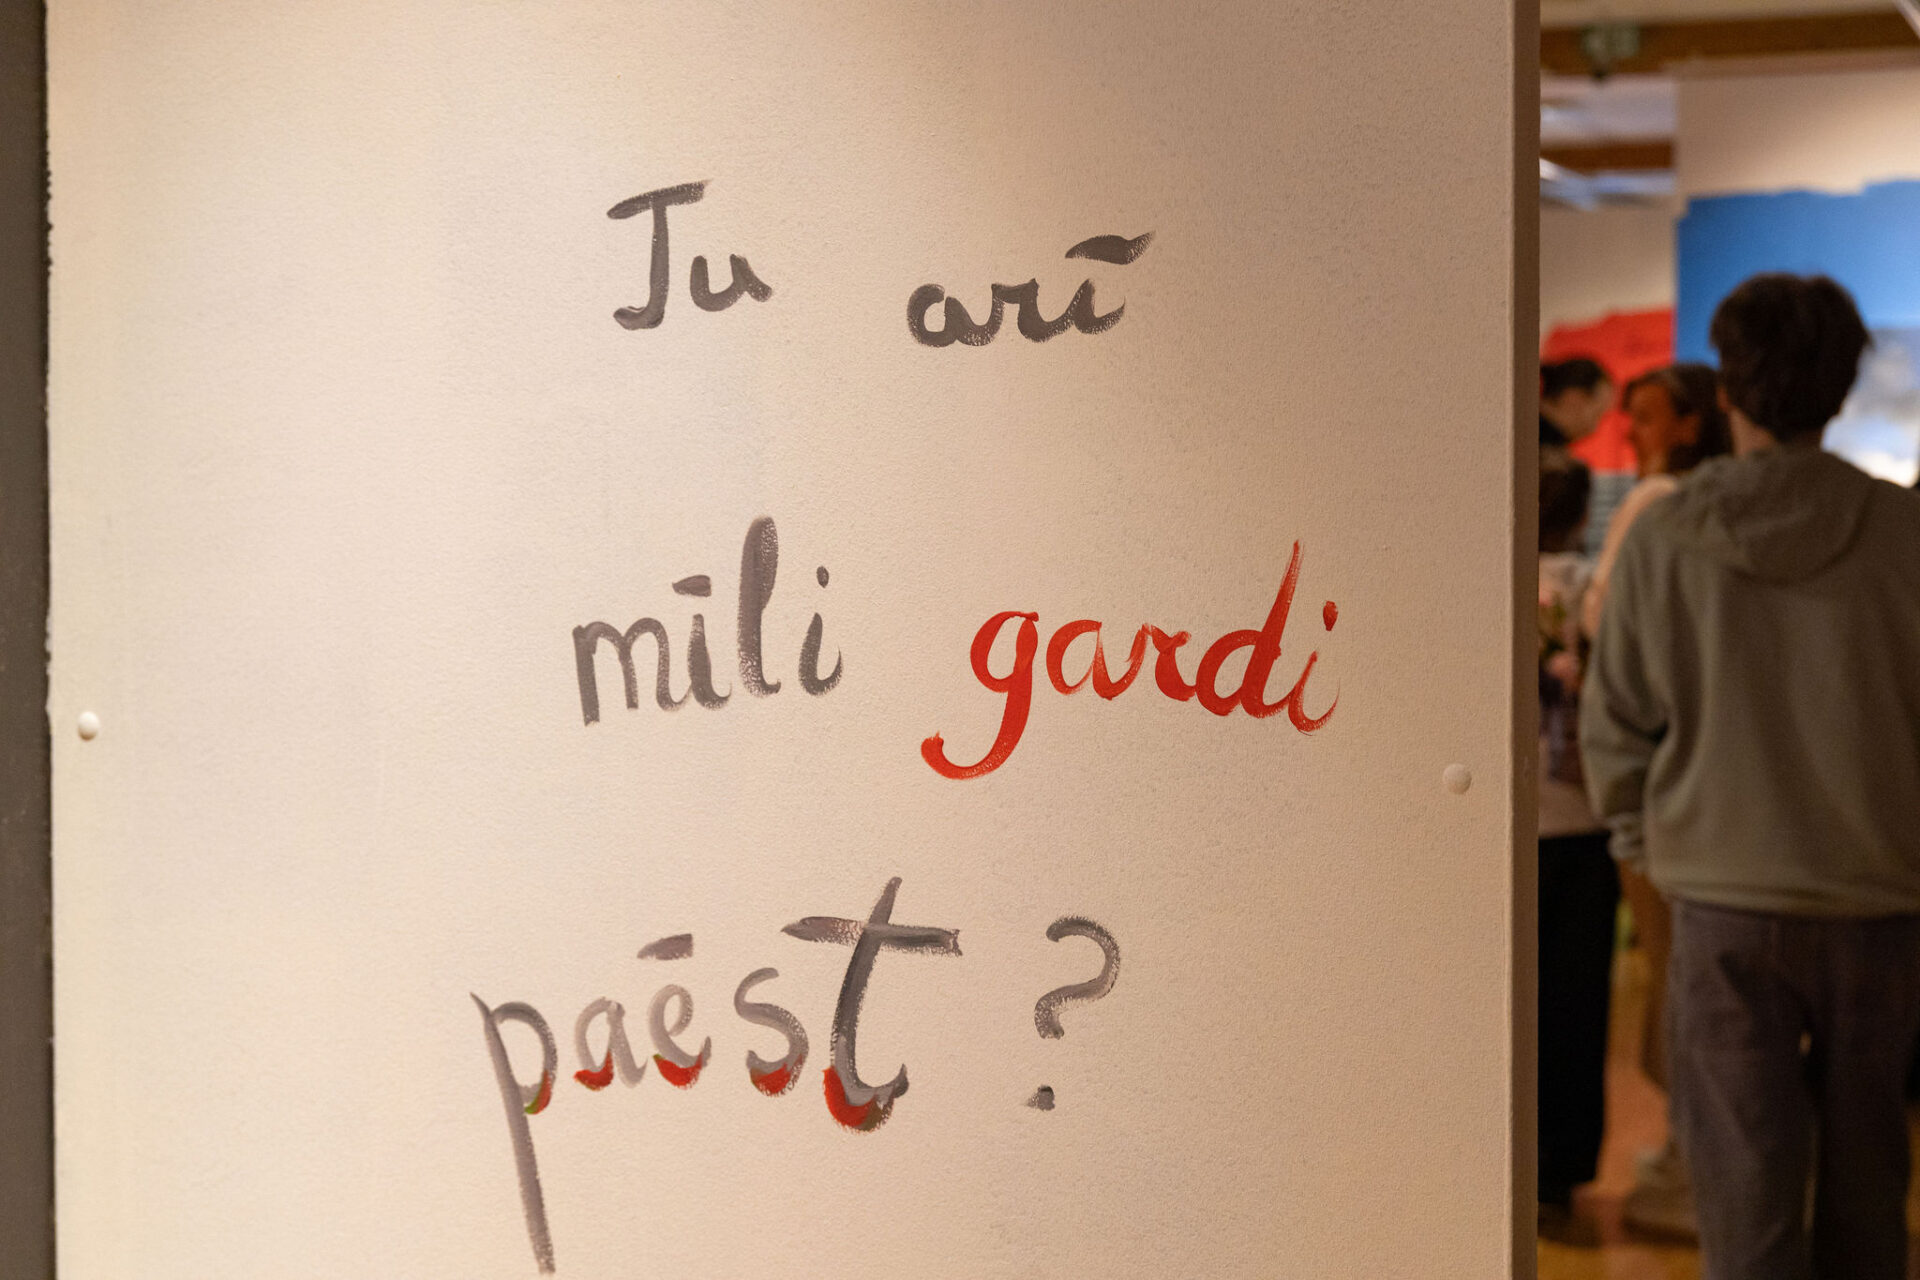 Tu arī
mīli gardi
paēst?